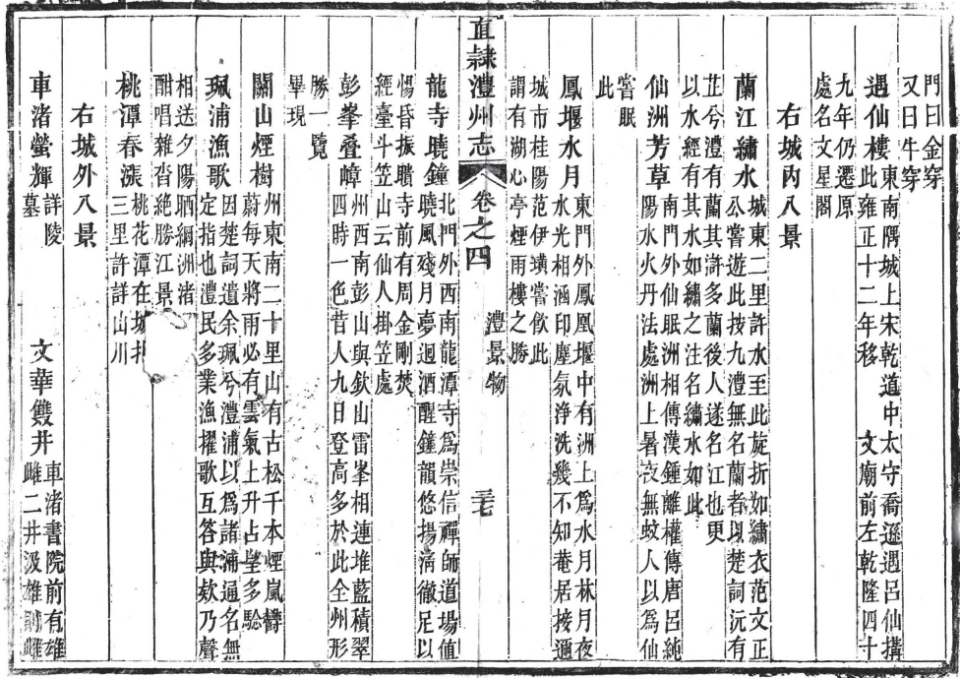 門曰金穿
又曰牛穿
遇仙樓東南隅城上宋乾道中太守喬遜遇呂仙搆
此雍正十二年移文廟前左乾隆四十
九年仍遷原
處名文星閣
右城內八景
蘭江繡水城東二里許水至此旋折如繡衣范文正
公嘗遊此按九澧無名蘭者以楚詞沅有
芷兮澧有蘭其滸多蘭後人遂名江也更
以水經有其水如繡之注名繡水如此
仙洲芳草南門外仙眠洲相傳漢鍾離權傳唐呂純
陽水火丹法處洲上暑夜無蚊人以為仙
嘗眠
此
鳳堰水月東門外鳳凰堰中有洲上為水月林月夜
水光相涵印塵氛淨洗幾不知菴居接邇
城市桂陽范伊璜嘗飲此
謂有湖心亭煙雨樓之勝
直隸澧州志
卷之四
澧景物
三七
龍寺曉鐘北門外西南龍潭寺為崇信禪師道場值
曉風殘月夢迴酒醒鐘韻悠揚清徹足以
惕昏振聵寺前有周金剛焚
經臺斗笠山云仙人掛笠處
彭峯叠嶂州西南彭山與欽山雷峯相連堆藍積翠
四時一色昔人九日登高多於此全州形
勝一覽
畢現
關山煙樹州東南二十里山有古松千本煙嵐
蔚每天將雨必有雲氣上升占望多驗
珮浦漁歌因楚詞遺余珮兮澧浦以為諸浦通名無
定指也澧民多業漁擢歌互答與欸乃聲
相送夕陽晒網洲渚
酣唱雜沓絕勝江景
桃潭春漲桃花潭在城北
三里許詳山川
右城外八景
車渚螢輝詳陵
墓
文華雙井車渚書院前有雄
雌二井汲雄則雌